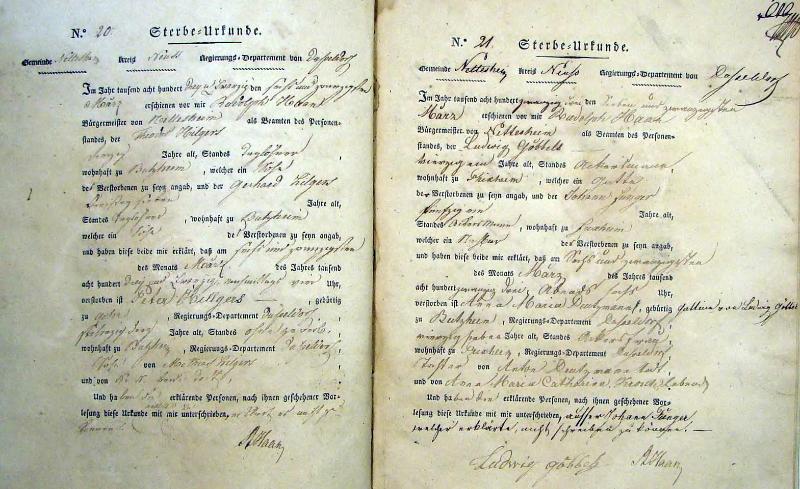 N.º 20 Sterbe-Urkunde.
Gemeinde Nettesheim Kreis Neuß Regierungs-Departement von Dusseldorf
Im Jahr tausend acht hundert drey und zwanzig den sechs und zwanzigsten
März erschienen vor mir Rudolph Haan
Bürgermeister von Nettesheim als Beamten des Personen-
standes, der Theodor Hilgers
Jahre alt, Standes Taglöhner
wohnhaft zu Butzheim, welcher ein Sohn
des Verstorbenen zu seyn angab, und der Gerhard Hilgers
Jahre alt,
Standes Taglöhner, wohnhaft zu Butzheim
welcher ein Sohn des Verstorbenen zu seyn angab,
und haben diese beide mir erklärt, daß am sechs und zwanzigsten
des Monats März des Jahres tausend
acht hundert drey und zwanzig, nachmittags vier Uhr,
verstorben ist Peter Hilgers gebürtig
zu, Regierungs-Departement Dusseldorf
Jahre alt, Standes
wohnhaft zu Butzheim, Regierungs-Departement Dusseldorf
Sohn von Hilgers
und von
Und haben die erklärende Personen, nach ihnen geschehener Vor-
lesung diese Urkunde mit mir unterschrieben,
RHaan
N.º 21. Sterbe-Urkunde.
Gemeinde Nettesheim Kreis Neuss Regierungs-Departement von Dusseldorf
Im Jahr tausend acht hundert zwanzig drei den sieben und zwanzigsten
März erschienen vor mir Rudolph Haan
Bürgermeister von Nettesheim als Beamten des Personen-
standes, der Ludwig Göbbels
vierzig ein Jahre alt, Standes Ackersmann
wohnhaft zu, welcher ein Gatte
der Verstorbenen zu seyn angab, und der Johann Junger
fünfzig ein Jahre alt,
Standes Ackersmann, wohnhaft zu
welcher ein der Verstorbenen zu seyn angab,
und haben diese beide mir erklärt, daß am Sechs und zwanzigsten
des Monats März des Jahres tausend
acht hundert zwanzig drei Abends sechs Uhr,
verstorben ist Anna Maria Deutzmann, gebürtig Gattinn von Ludwig Göbbels
zu Butzheim, Regierungs-Departement Dusseldorf
vierzig sieben Jahre alt, Standes Ackersfrau
wohnhaft zu, Regierungs-Departement Dusseldorf
Tochter von Anton Deutzmann todt
und von Anna Maria Catharina lebend
Und haben die erklärende Personen, nach ihnen geschehener Vor-
lesung diese Urkunde mit mir unterschrieben, ausser Johann Junger
welcher erklärte, nicht schreiben zu können. —
Ludwig göbbels RHaan